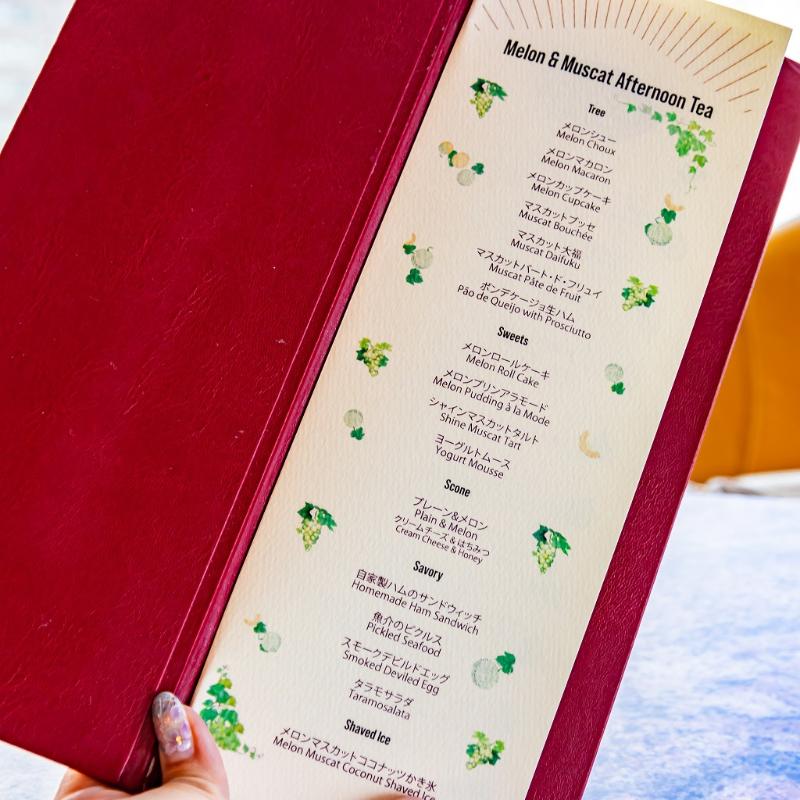 Melon & Muscat Afternoon Tea
Tree
メロンシュー
Melon Choux
メロンマカロン
Melon Macaron
メロンカップケーキ
Melon Cupcake
マスカットブッセ
Muscat Bouchée
マスカット大福
Muscat Daifuku
マスカットパート・ド・フリュイ
Muscat Pâte de Fruit
ポンデケージョ生ハム
Pão de Queijo with Prosciutto
Sweets
メロンロールケーキ
Melon Roll Cake
メロンプリンアラモード
Melon Pudding à la Mode
シャインマスカットタルト
Shine Muscat Tart
ヨーグルトムース
Yogurt Mousse
Scone
プレーン&メロン
Plain & Melon
クリームチーズ & はちみつ
Cream Cheese & Honey
Savory
自家製ハムのサンドウィッチ
Homemade Ham Sandwich
魚介のピクルス
Pickled Seafood
スモークデビルドエッグ
Smoked Deviled Egg
タラモサラダ
Taramosalata
Shaved Ice
メロンマスカットココナッツかき氷
Melon Muscat Coconut Shaved Ice